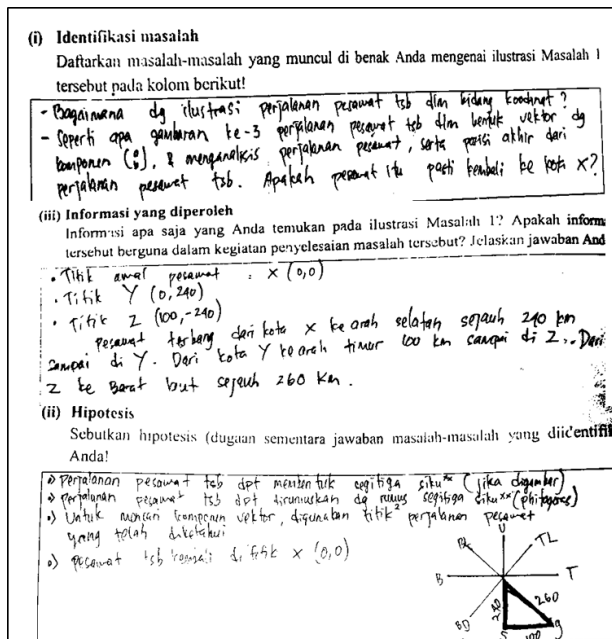 (i) Identifikasi masalah
Daftarkan masalah-masalah yang muncul di benak Anda mengenai ilustrasi Masalah 1
tersebut pada kolom berikut!
- Bagaimana dg ilustrasi perjalanan pesawat tsb dlm bidang koordinat?
- Seperti apa gambaran ke-3 perjalanan pesawat tsb dlm bentuk vektor dg
komponen (), & menganalisis perjalanan pesawat, serta posisi akhir dari
perjalanan pesawat tsb. Apakah pesawat itu pasti kembali ke kota X?
(iii) Informasi yang diperoleh
Informasi apa saja yang Anda temukan pada ilustrasi Masalah 1? Apakah inform
tersebut berguna dalam kegiatan penyelesaian masalah tersebut? Jelaskan jawaban And
• Titik awal pesawat : X (0,0)
• Titik Y (0, 240)
• Titik Z (100, -240)
Pesawat terbang dari kota X ke arah selatan sejauh 240 km
sampai di Y. Dari kota Y ke arah timur 100 km sampai di Z. Dari
Z ke Barat laut sejauh 260 km.
(ii) Hipotesis
Sebutkan hipotesis (dugaan sementara jawaban masalah-masalah yang diidentifi
Anda!
•) Perjalanan pesawat tsb dpt membentuk segitiga siku² (jika digambar)
•) perjalanan pesawat tsb dpt dirumuskan dg rumus segitiga siku²(phitagoras)
•) Untuk mencari komponen vektor, digunakan titik² perjalanan pesawat
yang telah diketahui
•) pesawat tsb kembali di titik X (0,0)
U
BL TL
B T
BD
240 260
S 100